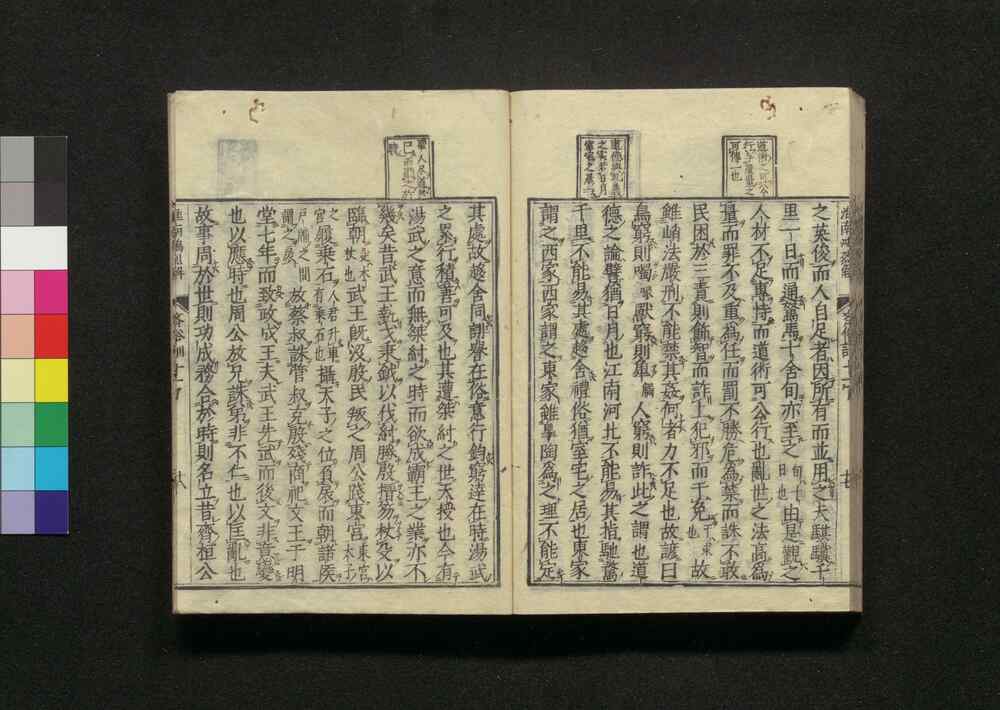 之英俊而人自足者因所有而並用之夫騏驥千
里一日而通駑馬十舍旬亦至之旬十日也由是觀之
人材不足專恃而道術可公行也亂世之法高爲
量而罪不及重爲任而罰不勝危爲禁而誅不敢
民困於三責則飾智而詐上犯邪而干免干求也故
雖峭法嚴刑不能禁其姦何者力不足也故諺曰
鳥窮則噣獸窮則𧢲人窮則詐此之謂也道
德之論譬猶日月也江南河北不能易其指馳騖
千里不能易其處趨舍禮俗猶室宅之居也東家
謂之西家西家謂之東家雖皐陶爲之理不能定
其處故趨舍同誹譽在俗意行鈞窮達在時湯武
之累行積善可及也其遭桀紂之世天授也今有
湯武之意而無桀紂之時而欲成霸王之業亦不
幾矣昔武王執戈秉鉞以伐紂勝殷搢笏杖殳以
臨朝殳木杖也武王既沒殷民叛之周公踐東宮東宮太子
宮履乘石人君升車有乘石也攝天子之位負扆而朝諸侯
戶牖之間謂之扆放蔡叔誅管叔克殷殘商祀文王于明
堂七年而致政成王夫武王先武而後文非意變
也以應時也周公放兄誅弟非不仁也以匡亂也
故事周於世則功成務合於時則名立昔齊桓公